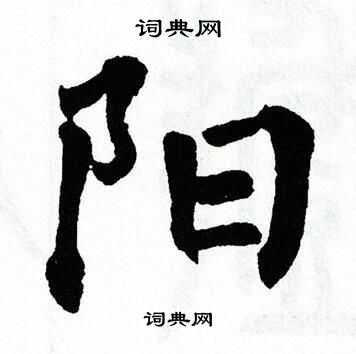 词典网
阳
词典网